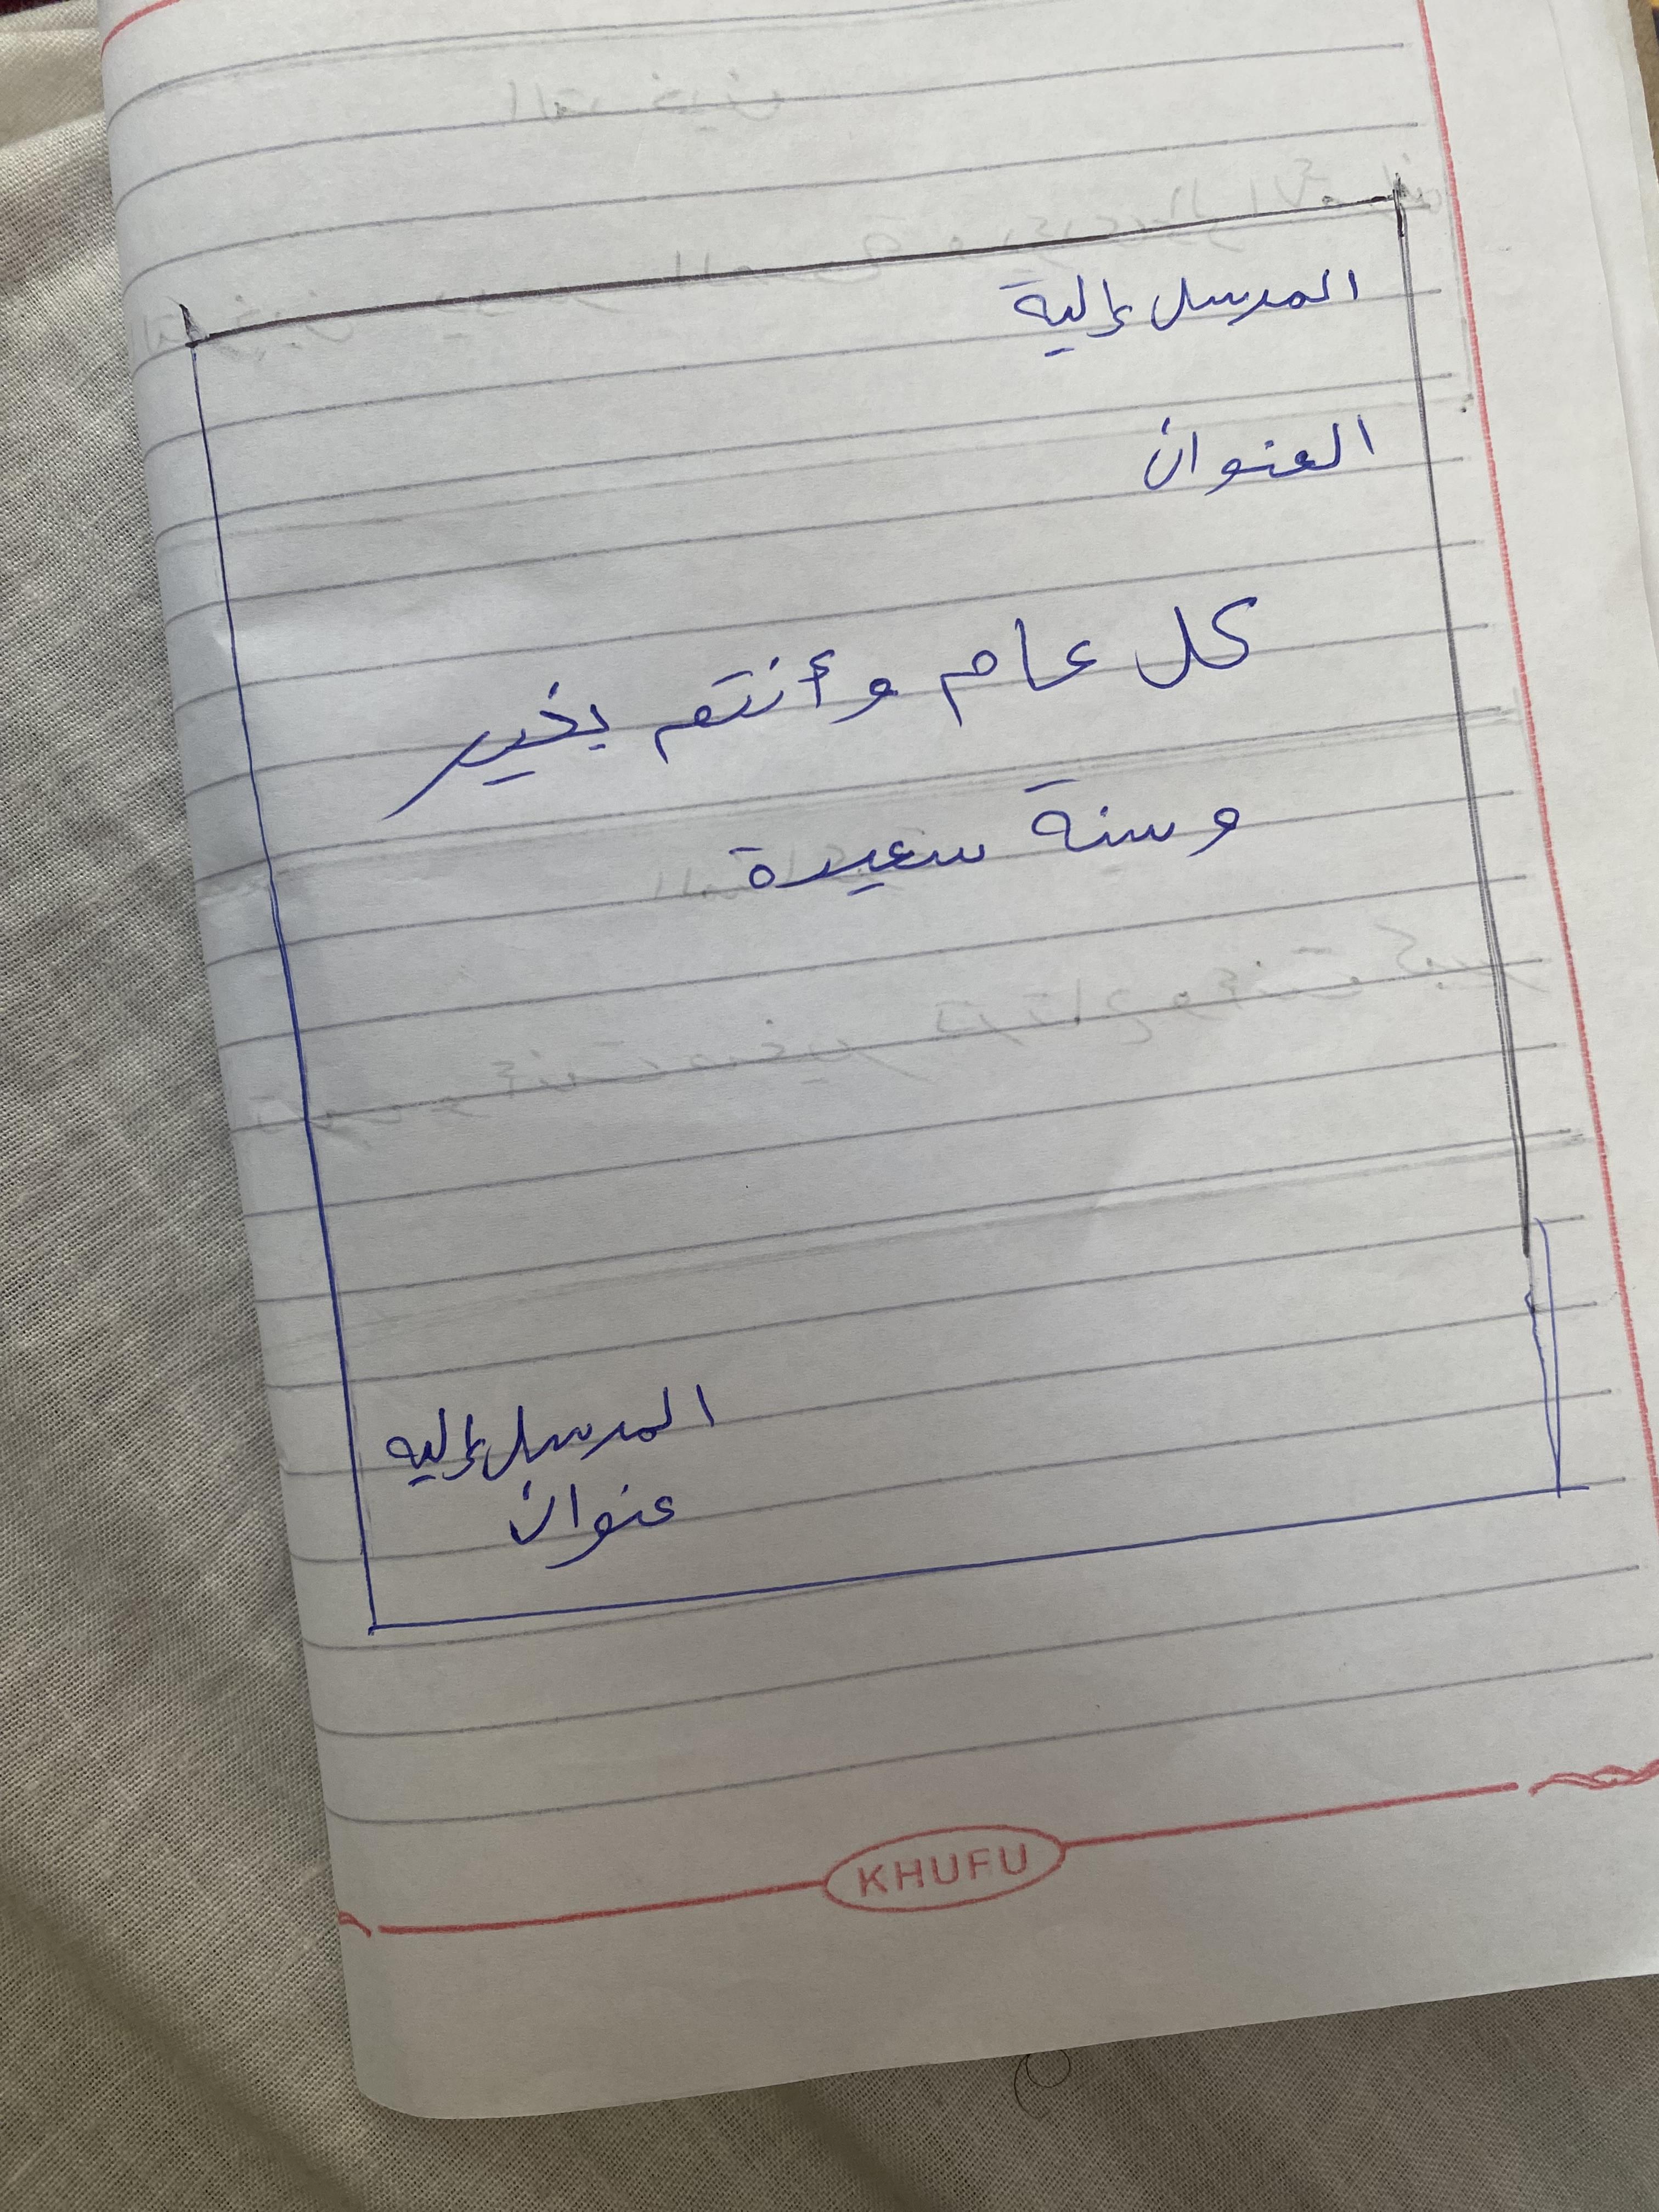 المرسل إلية
العنوان
كل عام وأنتم بخير
وسنة سعيدة
المرسل إليه
عنوان
KHUFU